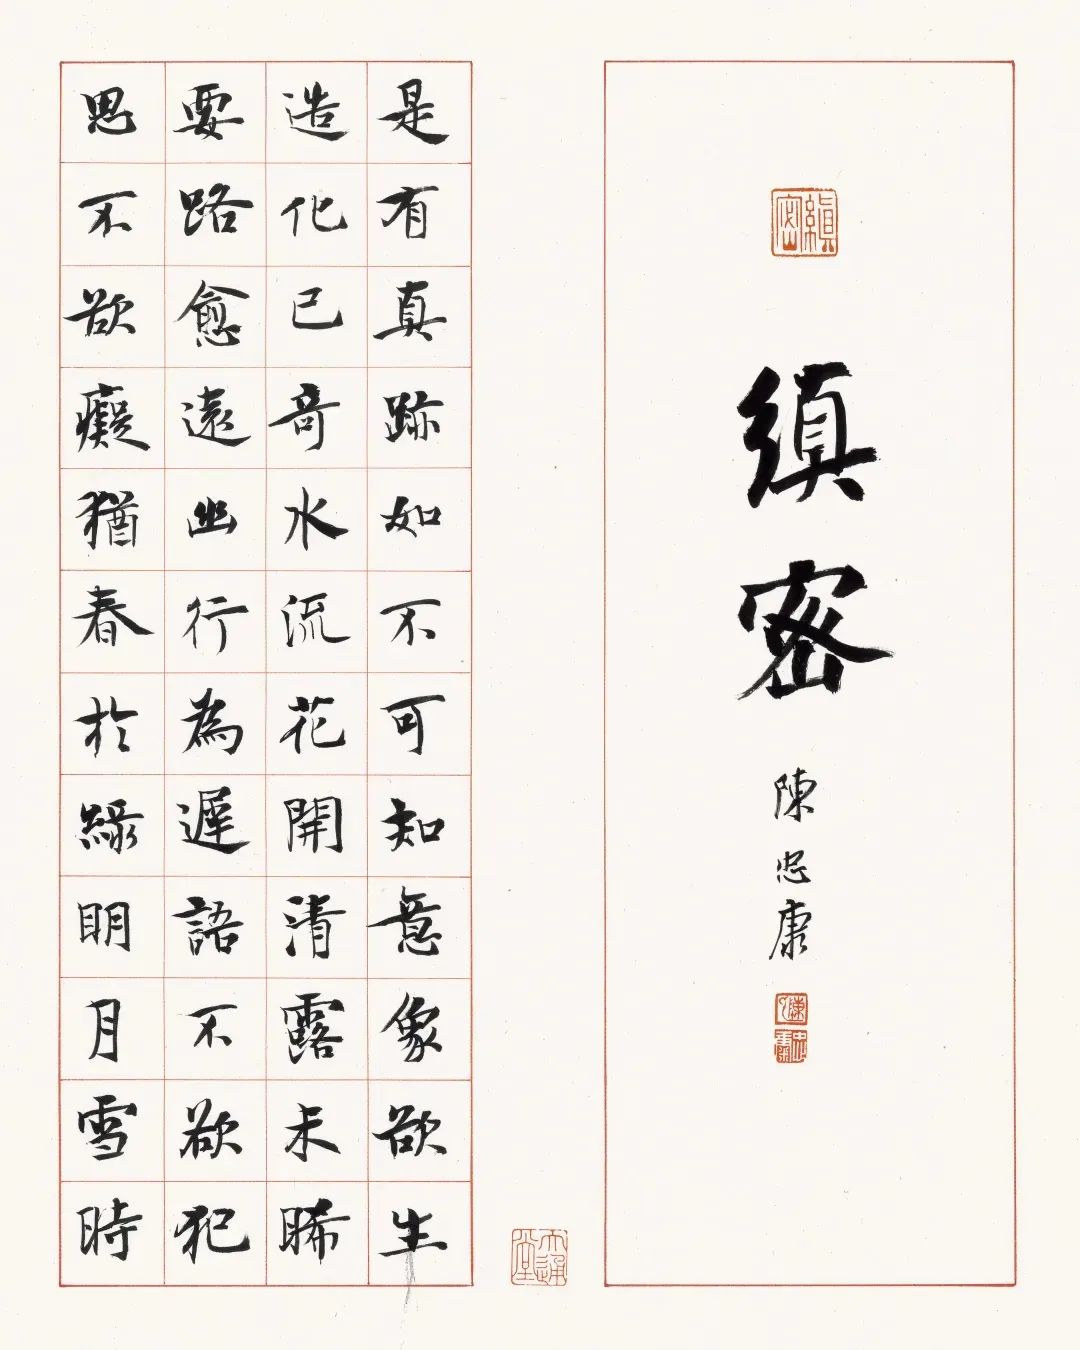 縝密
縝密
陳忠康
是有真跡如不可知意象欲生
造化已奇水流花開清露未晞
要路愈遠幽行為遲語不欲犯
思不欲癡猶春於綠明月雪時